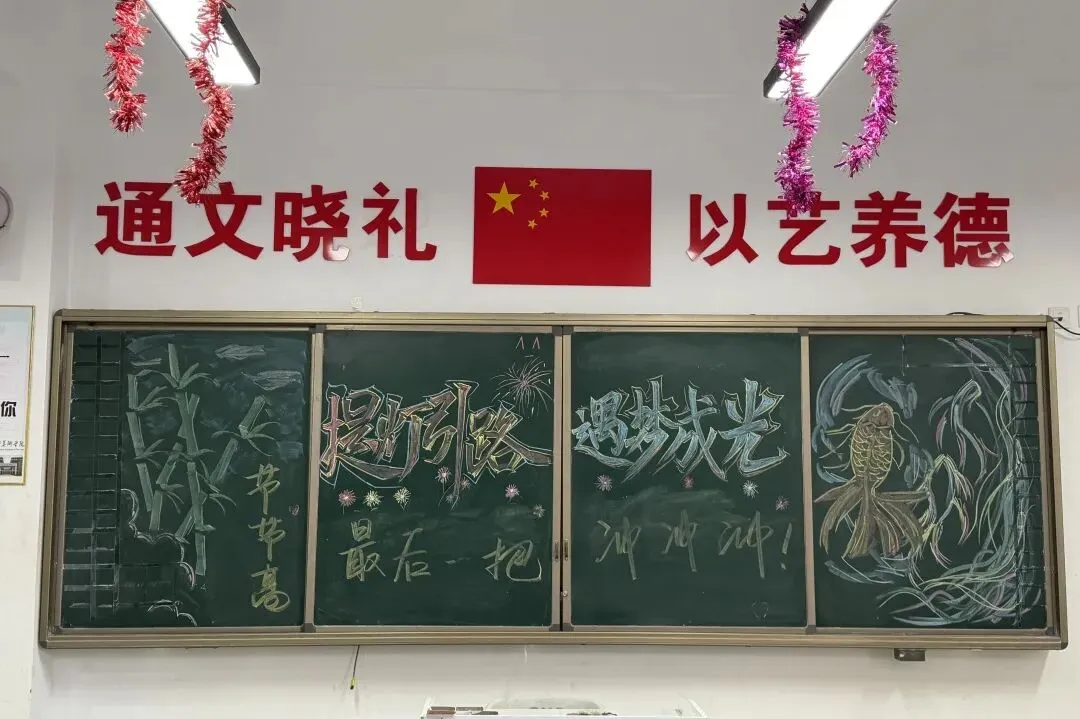 通文晓礼
以艺养德
你
节节高
提灯引路
遇梦成光
最后一把
冲冲冲!